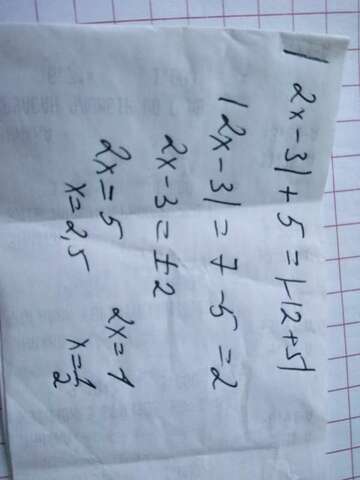 |2x-3|+5=|-12+5|
|2x-3|=7-5=2
2x-3=±2
2x=5 2x=1
x=2,5 x=1/2